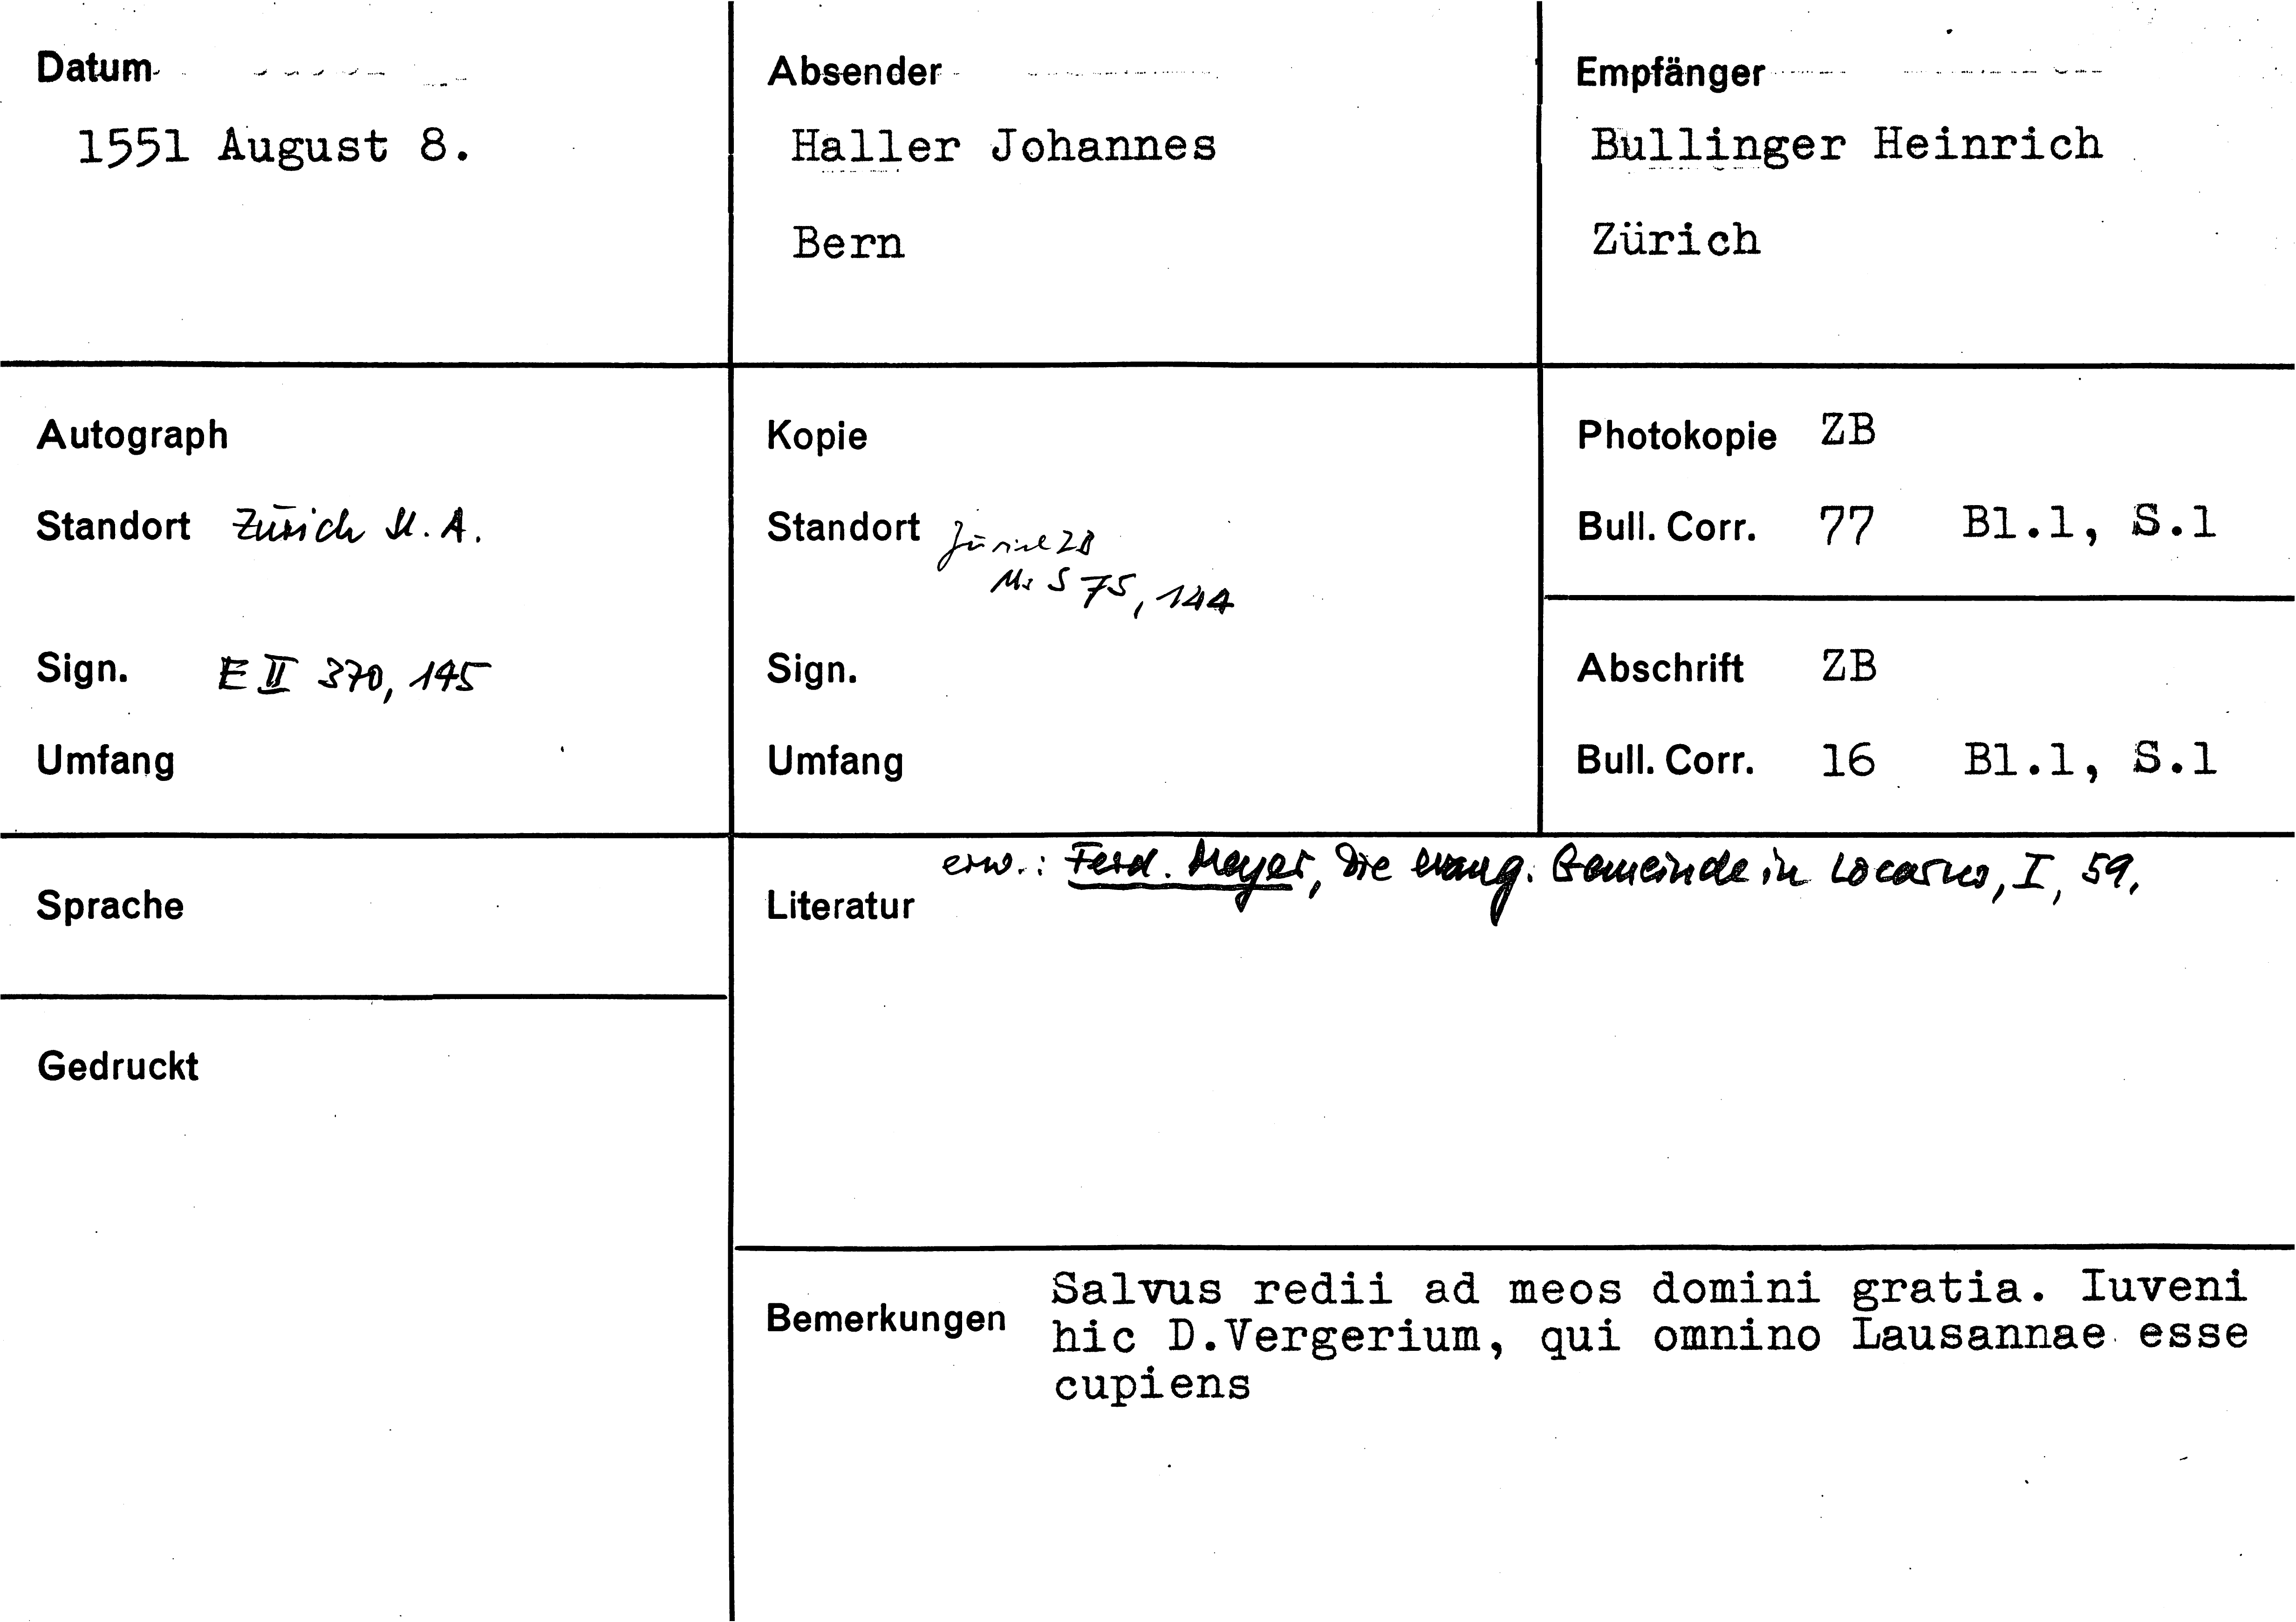 Datum
1551 August 8.
Absender
Haller Johannes
Bern
Empfänger
Bullinger Heinrich
Zürich
Autograph
Standort Zürich St. A.
Sign. E II 370, 145
Umfang
Kopie
Standort Zürich ZB
Ms S 75, 144
Sign.
Umfang
Photokopie ZB
Bull. Corr. 77 Bl.1, S.1
Abschrift ZB
Bull. Corr. 16 Bl.1, S.1
Sprache
Gedruckt
erw.: Ferd. Meyer, Die evang. Gemeinde in Locarno, I, 59.
Literatur
Bemerkungen
Salvus redii ad meos domini gratia. Iuveni
hic D.Vergerium, qui omnino Lausannae esse
cupiens